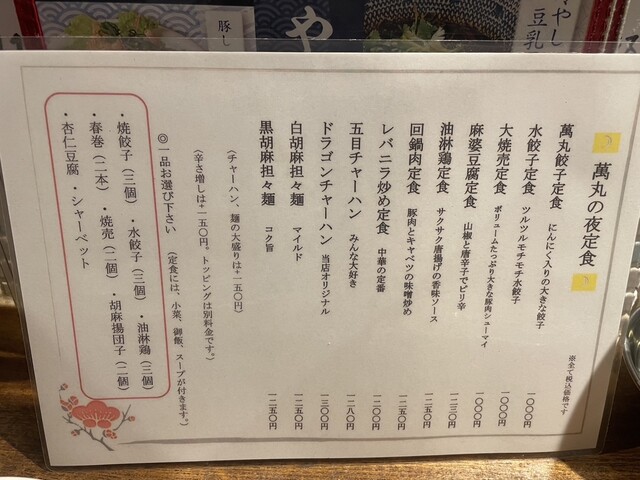 萬丸の夜定食
※全て税込価格です
萬丸餃子定食 にんにく入りの大きな餃子 一〇〇〇円
水餃子定食 ツルツルモチモチ水餃子 一〇〇〇円
大焼売定食 ボリュームたっぷり大きな豚肉シューマイ 一〇〇〇円
麻婆豆腐定食 山椒と唐辛子でピリ辛 一二三〇円
油淋鶏定食 サクサク唐揚げの香味ソース 一二五〇円
回鍋肉定食 豚肉とキャベツの味噌炒め 一二五〇円
レバニラ炒め定食 中華の定番 一二〇〇円
五目チャーハン みんな大好き 一二八〇円
ドラゴンチャーハン 当店オリジナル 一三〇〇円
白胡麻担々麺 マイルド 一二五〇円
黒胡麻担々麺 コク旨 一二五〇円
（チャーハン、麺の大盛りは+一五〇円）
（辛さ増しは+一五〇円。トッピングは別料金です。）
◎一品お選び下さい （定食には、小菜、御飯、スープが付きます。）
・焼餃子（三個） ・水餃子（三個） ・油淋鶏（三個）
・春巻（二本） ・焼売（二個） ・胡麻揚団子（二個）
・杏仁豆腐 ・シャーベット
やし
豆乳
や
豚し